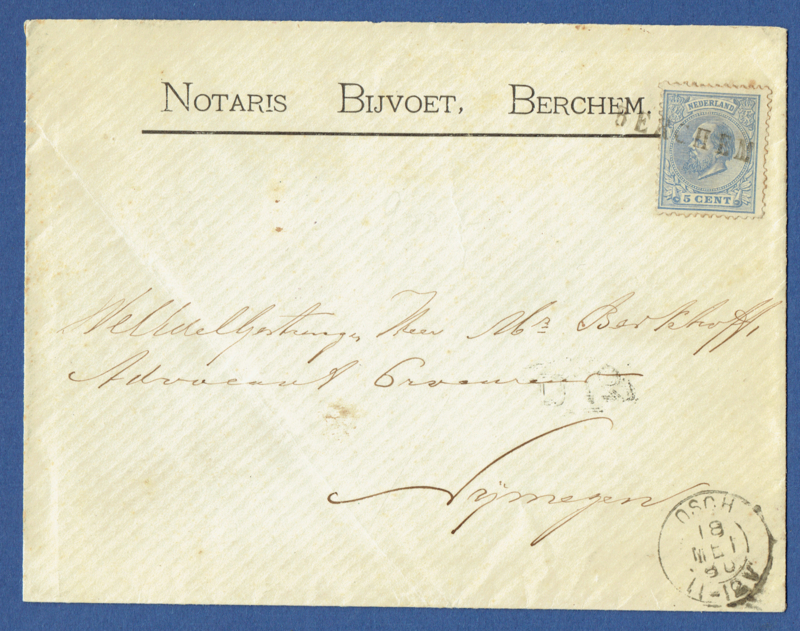 NOTARIS BIJVOET, BERCHEM.
NEDERLAND
BERCHEM
5 CENT
WelEdelGestrenge Heer Mr Berkhoff,
Advocaat Procureur
Nijmegen
OSCH
18
MEI
80
11-12V